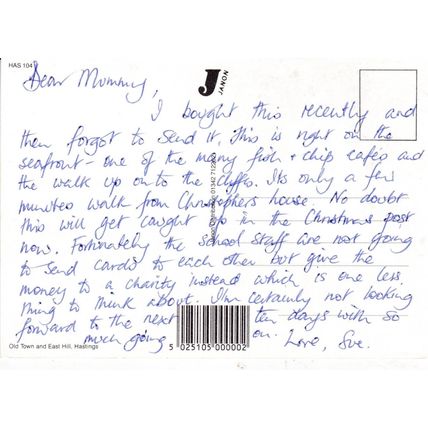 HAS 104
J
JANON
Dear Mummy,
I bought this recently and
then forgot to send it. This is right on the
seafront - one of the many fish + chip cafés and
the walk up onto the cliffs. Its only a few
minutes walk from Christophers house. No doubt
this will get caught up in the Christmas post
now. Fortunately the school staff are not going
to send cards to each other but give the
money to a charity instead which is one less
thing to think about. I'm certainly not looking
forward to the next ten days with so
much going on. Love, Sue.
Old Town and East Hill, Hastings
5 025105 000002